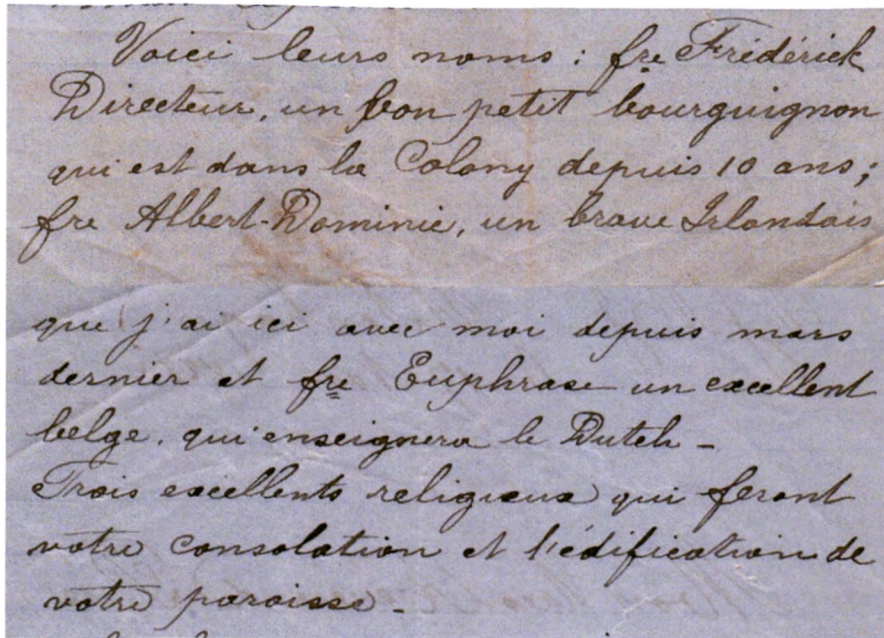 Voici leurs noms : fre Frédérick
Directeur, un bon petit bourguignon
qui est dans la Colony depuis 10 ans ;
fre Albert-Dominic, un brave Irlandais
que j'ai ici avec moi depuis mars
dernier et fre Euphrase un excellent
belge. qui enseignera le Dutch -
Trois excellents religieux qui feront
votre consolation et l'édification de
votre paroisse -